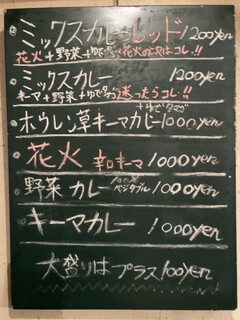 ミックスカレーレッド 1200yen
花火+野菜+ゆでタマゴ 花火の次はコレ!!
ミックスカレー 1200yen
キーマ+野菜+ゆでタマゴ 迷ったらコレ!!
+ゆでタマゴ
ホウレン草キーマカレー 1000yen
花火 辛口キーマ 1000yen
野菜カレー ベジタブル 1000yen
キーマカレー 1000yen
大盛りはプラス100yen